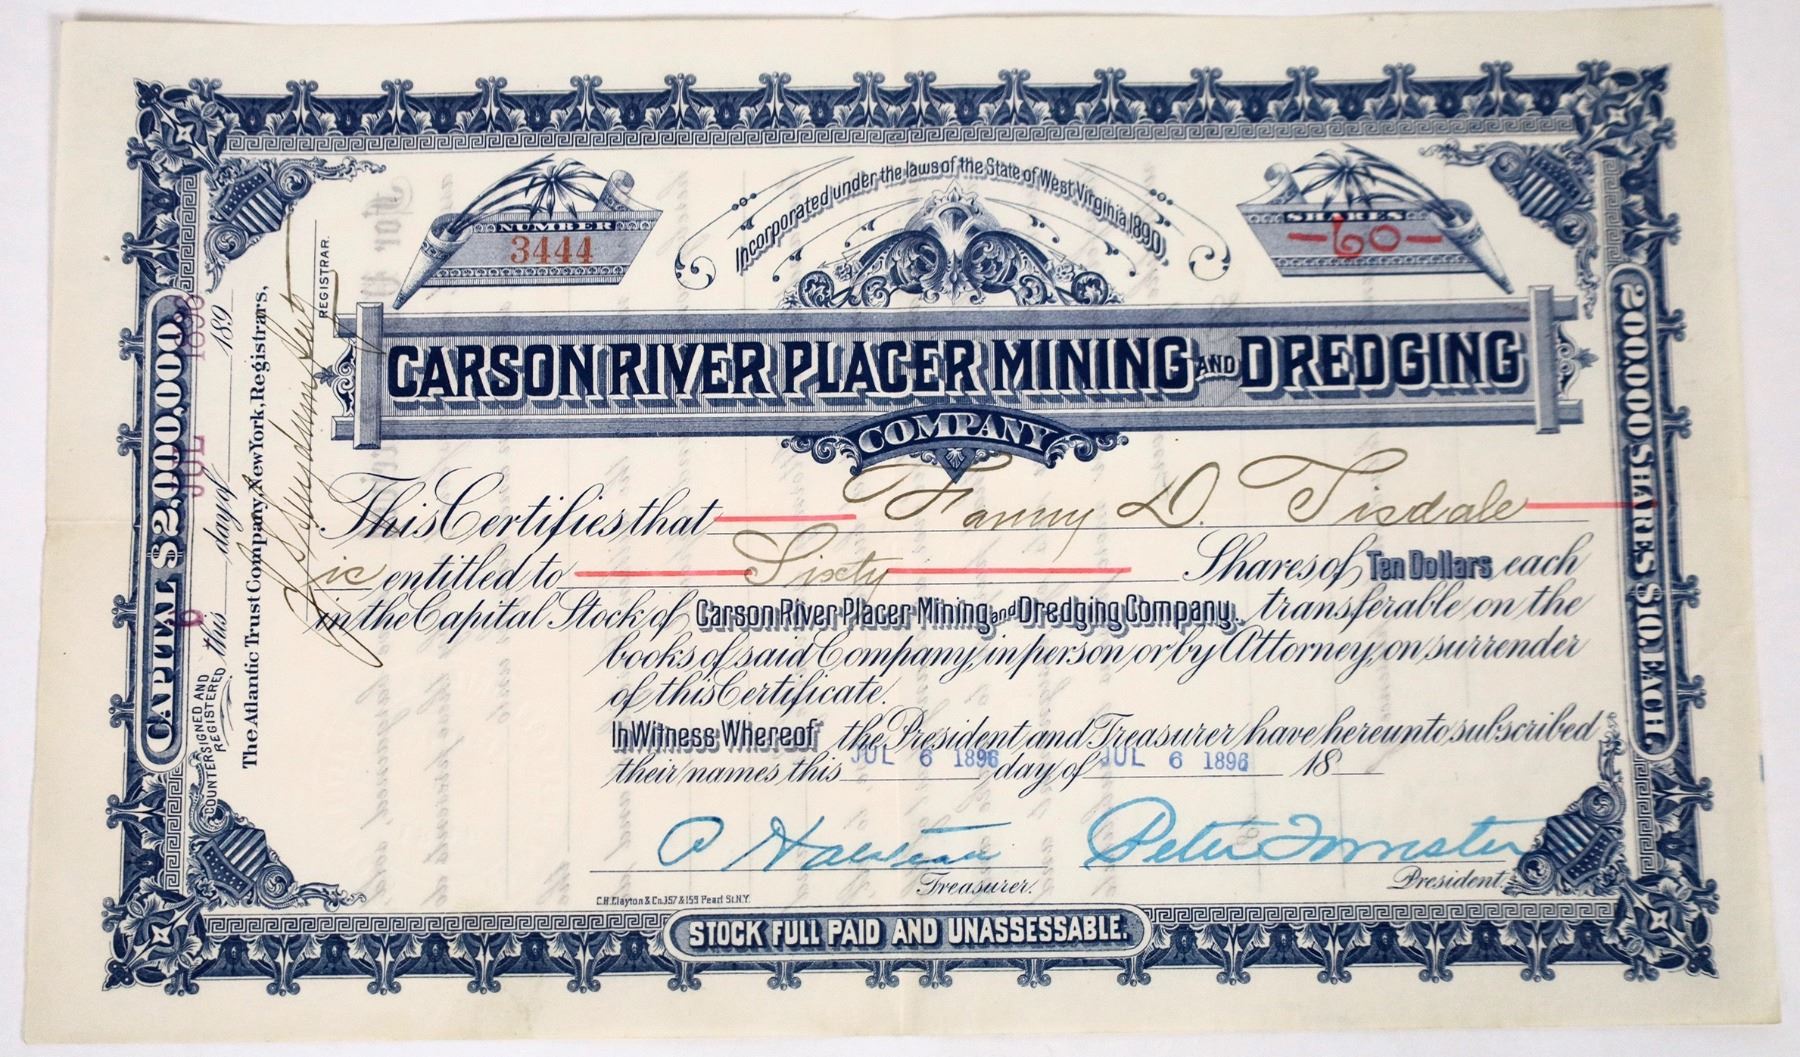 Incorporated under the laws of the State of West Virginia 1890.
NUMBER
3444
SHARES
-60-
CARSON RIVER PLACER MINING AND DREDGING
COMPANY
This Certifies that Fanny D. Tisdale
is entitled to Sixty Shares of Ten Dollars each
in the Capital Stock of Carson River Placer Mining and Dredging Company, transferable on the
books of said Company, in person or by Attorney, on surrender
of this Certificate.
In Witness Whereof the President and Treasurer have hereunto subscribed
their names this JUL 6 1896 day of JUL 6 1896 18
Peter Forrester
Treasurer.
President.
C.H. Clayton & Co. 157 & 159 Pearl St. N.Y.
STOCK FULL PAID AND UNASSESSABLE.
CAPITAL $2,000,000.
COUNTERSIGNED AND
REGISTERED this 6 day of JUL 1896 189
The Atlantic Trust Company, New York, Registrars,
REGISTRAR.
200,000 SHARES $10. EACH.